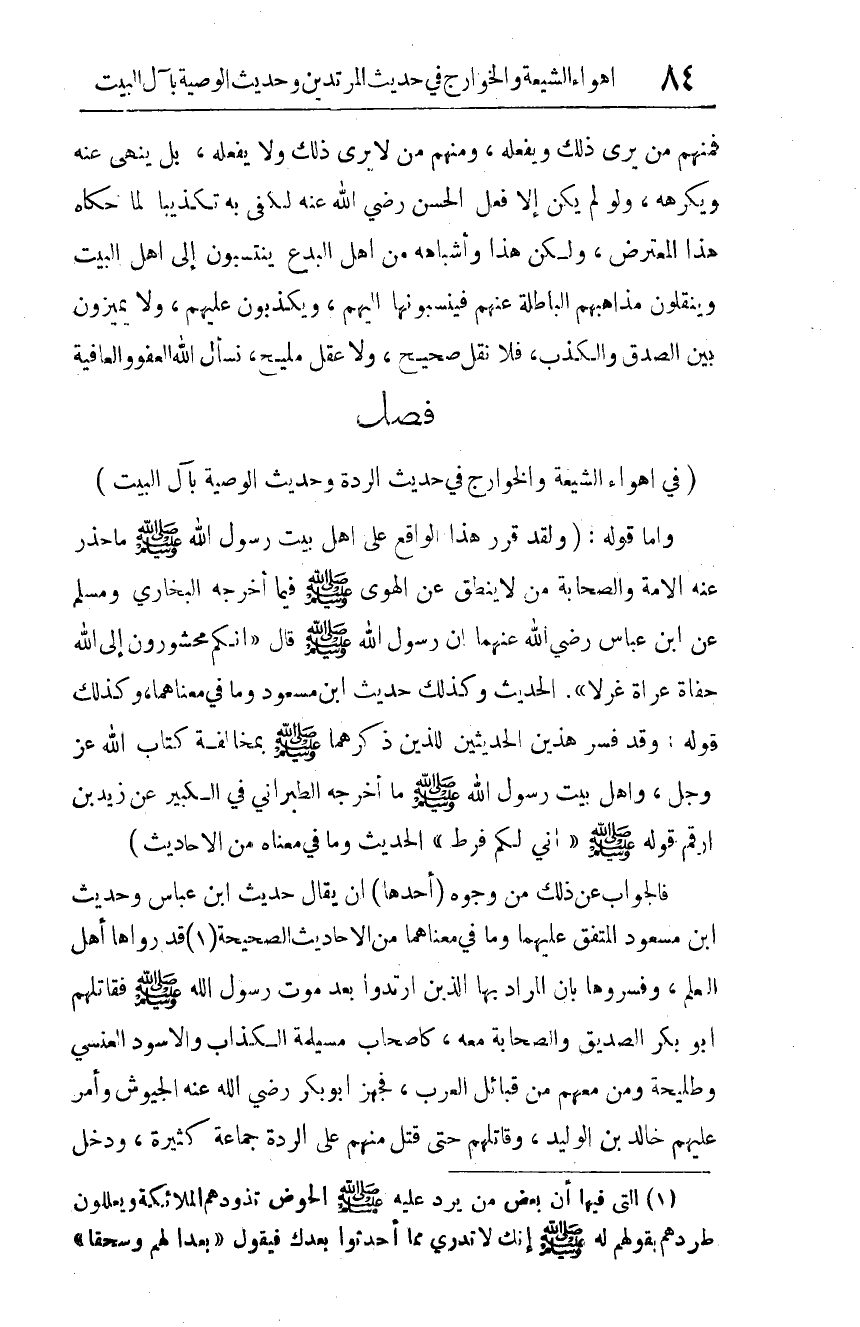 ٨٤ اهواء الشيعة والخوارج في حديث المرتدين وحديث الوصية بآل البيت
فمنهم من يرى ذلك ويفعله ، ومنهم من لا يرى ذلك ولا يفعله ، بل ينهى عنه
ويكرهه ، ولو لم يكن إلا فعل الحسن رضي الله عنه لكفى به تكذيبا لما حكاه
هذا المعترض ، ولكن هذا وأشباهه من اهل البدع ينتسبون إلى اهل البيت
وينقلون مذاهبهم الباطلة عنهم فينسبونها اليهم ، ويكذبون عليهم ، ولا يميزون
بين الصدق والكذب، فلا نقل صحيح ، ولا عقل مليح، نسأل الله العفو والعافية
فصل
( في اهواء الشيعة والخوارج في حديث الردة وحديث الوصية بآل البيت )
واما قوله : ( ولقد قرر هذا الواقع على اهل بيت رسول الله ﷺ ماحذر
عنه الامة والصحابة من لاينطق عن الهوى ﷺ فيما أخرجه البخاري ومسلم
عن ابن عباس رضي الله عنهما ان رسول الله ﷺ قال «انكم محشورون إلى الله
حفاة عراة غرلا». الحديث وكذلك حديث ابن مسعود وما في معناهما، وكذلك
قوله : وقد فسر هذين الحديثين للذين ذكرهما ﷺ بمخالفة كتاب الله عز
وجل ، واهل بيت رسول الله ﷺ ما أخرجه الطبراني في الكبير عن زيد بن
ارقم قوله ﷺ « أني لكم فرط » الحديث وما في معناه من الاحاديث )
فالجواب عن ذلك من وجوه (أحدها) ان يقال حديث ابن عباس وحديث
ابن مسعود المتفق عليهما وما في معناهما من الاحاديث الصحيحة(١)قد رواها أهل
العلم ، وفسروها بان المراد بها الذين ارتدوا بعد موت رسول الله ﷺ فقاتلهم
ابو بكر الصديق والصحابة معه ، كاصحاب مسيلمة الكذاب والاسود العنسي
وطليحة ومن معهم من قبائل العرب ، فجهز ابوبكر رضي الله عنه الجيوش وأمر
عليهم خالد بن الوليد ، وقاتلهم حتى قتل منهم على الردة جماعة كثيرة ، ودخل
(١) التي فيها أن بعض من يرد عليه ﷺ الحوض تذودهم الملائكة ويعللون
طردهم بقولهم له ﷺ إنك لا تدري مما أحدثوا بعدك فيقول «بعدا لهم وسحقا»